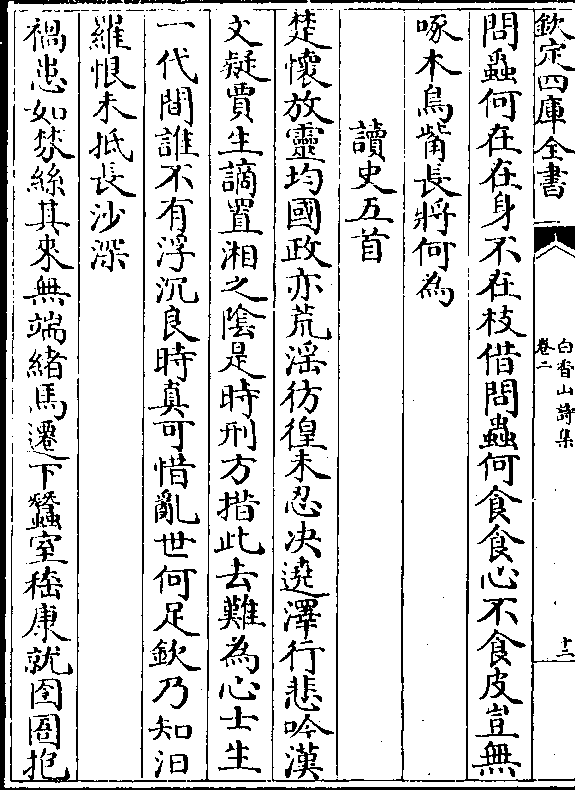 欽定四庫全書
白香山詩集
卷二
十二
問蟲何在在身不在枝借問蟲何食食心不食皮豈無
啄木鳥觜長將何為
讀史五首
楚懷放靈均國政亦荒淫彷徨未忍决遶澤行悲吟漢
文疑賈生謫置湘之陰是時刑方措此去難為心士生
一代間誰不有浮沉良時真可惜亂世何足欽乃知汨
羅恨未抵長沙深
禍患如棼絲其來無端緒馬遷下蠶室嵇康就囹圄抱